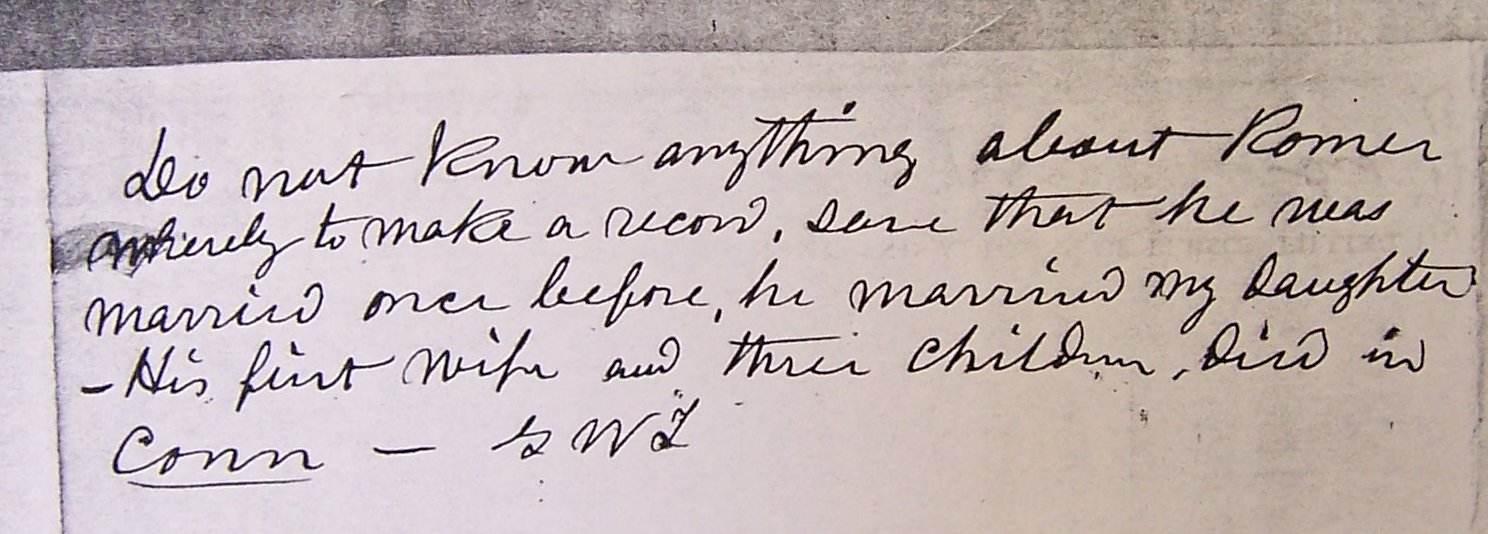 Do not know anything about Romer
whereby to make a record, save that he was
married once before, he married my daughter
- His first wife and three children, died in
Conn — G W T